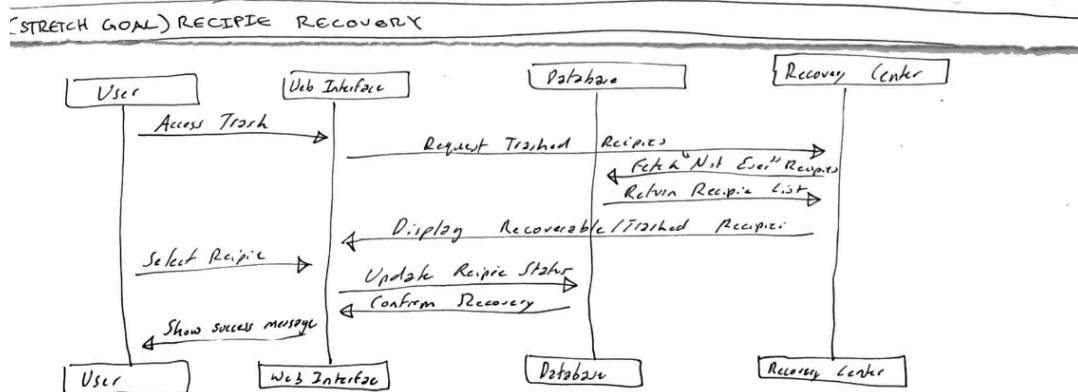 (STRETCH GOAL) RECIPIE RECOVERY
User
Web Interface
Database
Recovery Center
Access Trash
Request Trashed Recipies
Fetch "Not Ever" Recipies
Return Recipie List
Display Recoverable/Trashed Recipies
Select Recipie
Update Recipie Status
Confirm Recovery
Show success message
User
Web Interface
Database
Recovery Center